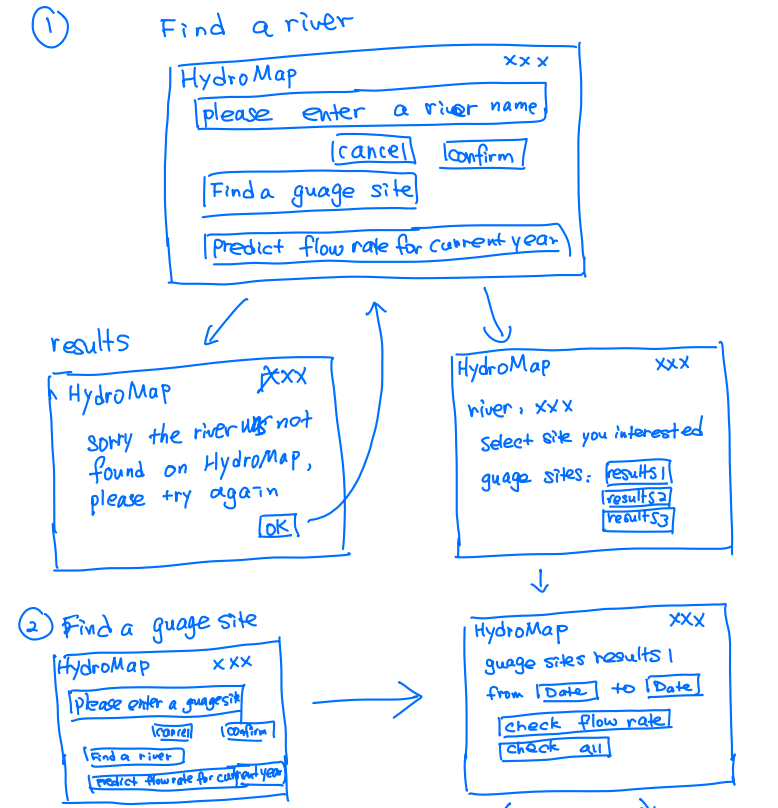 1 Find a river
HydroMap xxx
please enter a river name
cancel confirm
Find a guage site
Predict flow rate for current year
results
HydroMap xxx
sorry the river was not
found on HydroMap,
please try again
OK
HydroMap xxx
river, xxx
Select site you interested
guage sites: results1
results2
results3
2 Find a guage site
HydroMap xxx
please enter a guage site
cancel confirm
Find a river
Predict flow rate for current year
HydroMap xxx
guage sites results 1
from Date to Date
check flow rate
check all